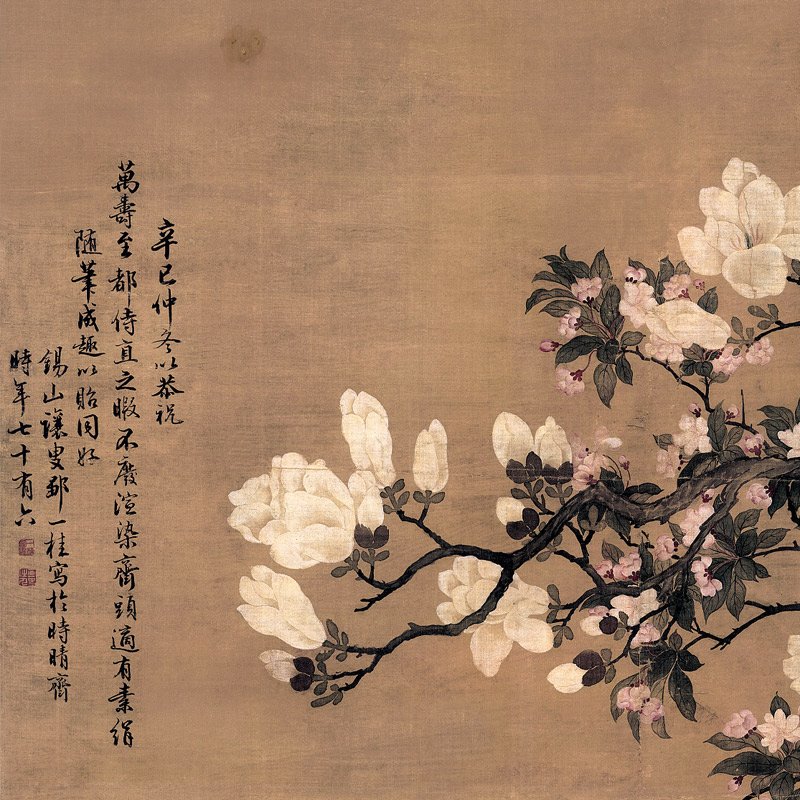 辛巳仲冬以恭祝
萬壽至都侍直之暇不廢渲染齋頭適有素絹
随筆成趣以貽同好
錫山讓叟鄒一桂寫於時晴齋
時年七十有六